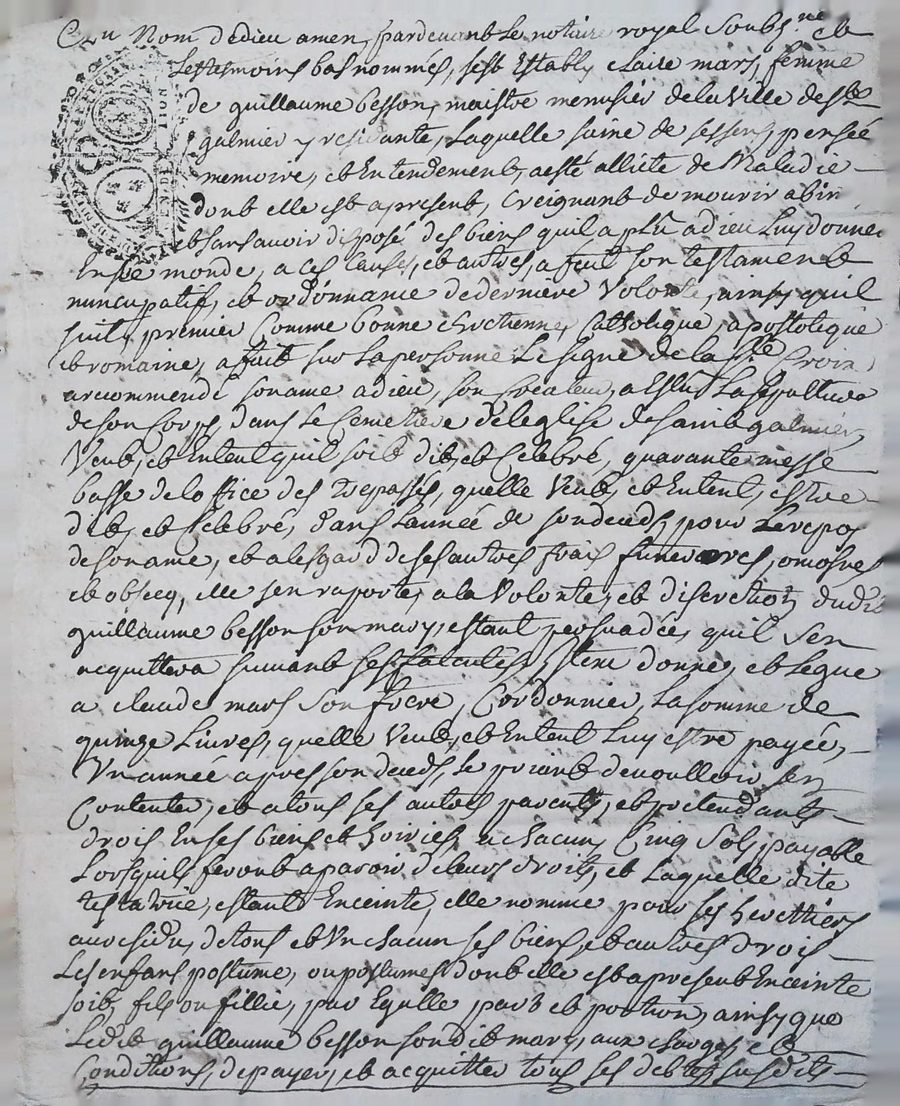 Au Nom de dieu amen, pardevant Le notaire royal Soubs.né et
Les tesmoins bas nommés, sest Estably claire mars, femme
de guillaume besson, maistre menusier de la Ville de st
galmier y residante, Laquelle saine de ses sens, pensée
memoire, et Entendement, a esté allicte de Maladie
dont elle est a present, Creignant de mourir abin
et sans avoir disposé des biens quil a plu a dieu Luy donner
En ce monde, a ces Causes, et autres, a fait son testament
nuncupatif, et ordonnance de derniere Volonte, ainsy quil
suit, premier Comme bonne chretienne, Catholique, apostolique
et romaine, a fait sur La personne Le signe de la Ste Croix,
a recommendé son ame a dieu, son Createur, a Eslu La sepulture
de son Corps, dans Le Cemetiere de leglise de saint galmier,
Veut, et Entent quil soit dit, et Celebré, quarante messe
basse de loffice des trepassés, quelle Veut, et Entent, estre
dit, et Celebré, dans Lannée de son deceds, pour Le repos
de son ame, et a lesgard de ses autres frais funeraires, omosnes
et obseq, elle sen raporte, a la Volonte, et discretion dudit
guillaume besson son mary, estant persuadée, quil Sen
acquittera suivant ses facultés, Item donne, et Legue
a claude mars Son frere, Cordonnier, La somme de
quinze Livres, quelle Veut, et Entent Luy estre payée,
Un année apres son deceds, le priant de voulloir sen
Contenter, et a tous ses autres parents, et pretendants
drois En ses biens et hoiries, a chacun Cinq Sols, payable
Lorsquils feront aparoir, de leurs droits, et Laquelle dite
testatrice, estant Enceinte, elle nomme pour ses herettiers
au residu, de tous et Un chacun ses biens, et autres drois
Les enfans postume, ou postumes dont elle est a present Enceinte
soit, fils ou fillie, par Egalle part et portion, ainsy que
Ledit guillaume besson son dit mary, aux charges, et
Conditions, de payer, et acquitter tous ses debtes susdits